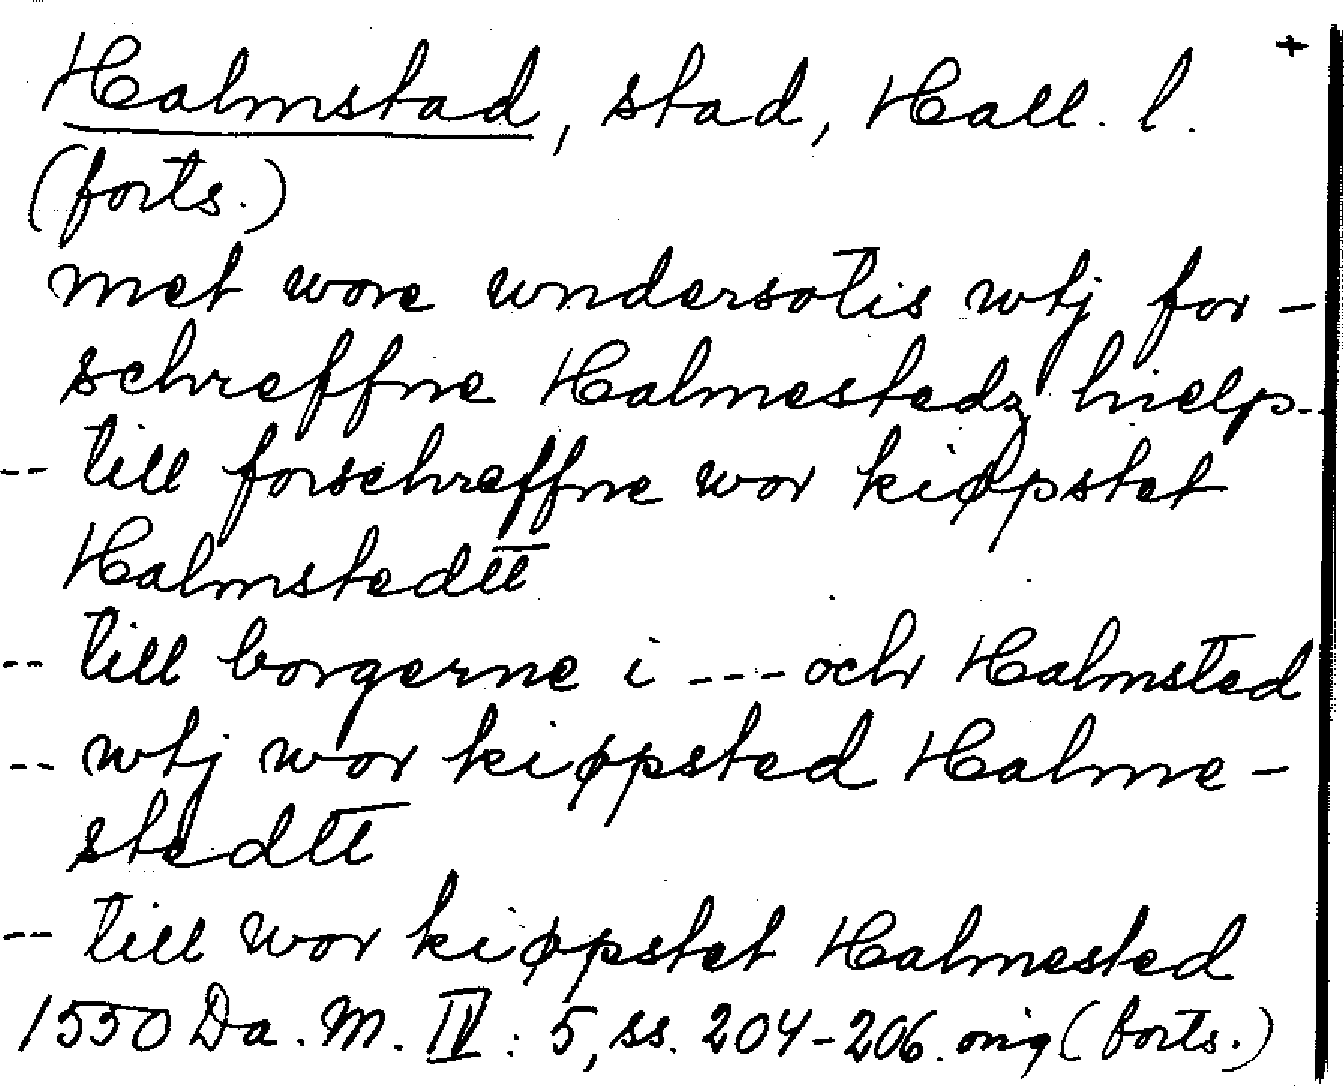 Halmstad, stad, Hall. l. +
(forts.)
met wore wndersotis wtj for-
schreffne Halmestedz hielp--
-- till forschreffne wor kiøpstet
Halmstedtt
-- till borgerne i --- och Halmsted
-- wtj wor kiøpsted Halme-
stedtt
-- till wor kiøpstet Halmested
1550 Da. M. IV: 5, ss. 204-206. orig (forts.)